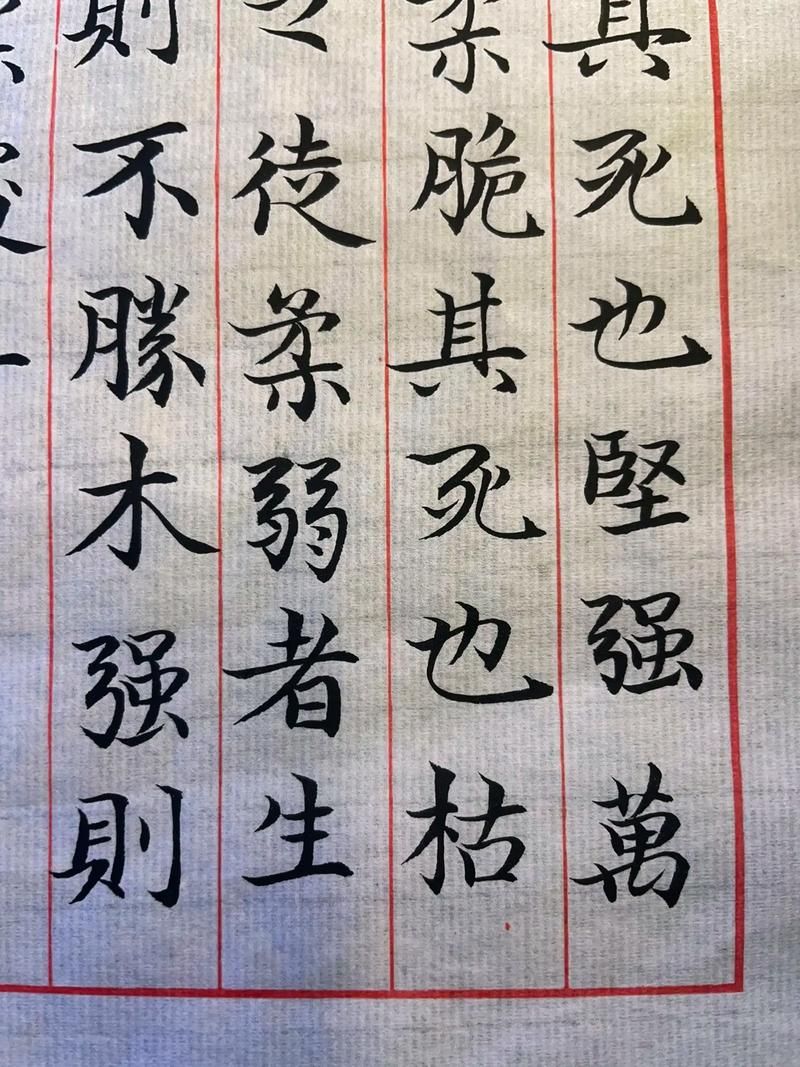 其死也堅强萬
柔脆其死也枯
之徒柔弱者生
則不勝木强則